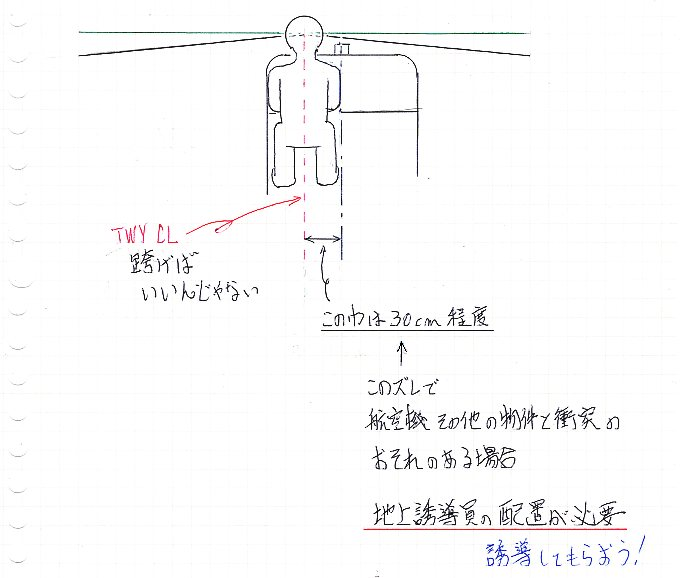 TWY CL
跨げば
いいんじゃない
この巾は30cm程度
このズレで
航空機その他の物件と衝突の
おそれのある場合
地上誘導員の配置が必要
誘導してもらおう！